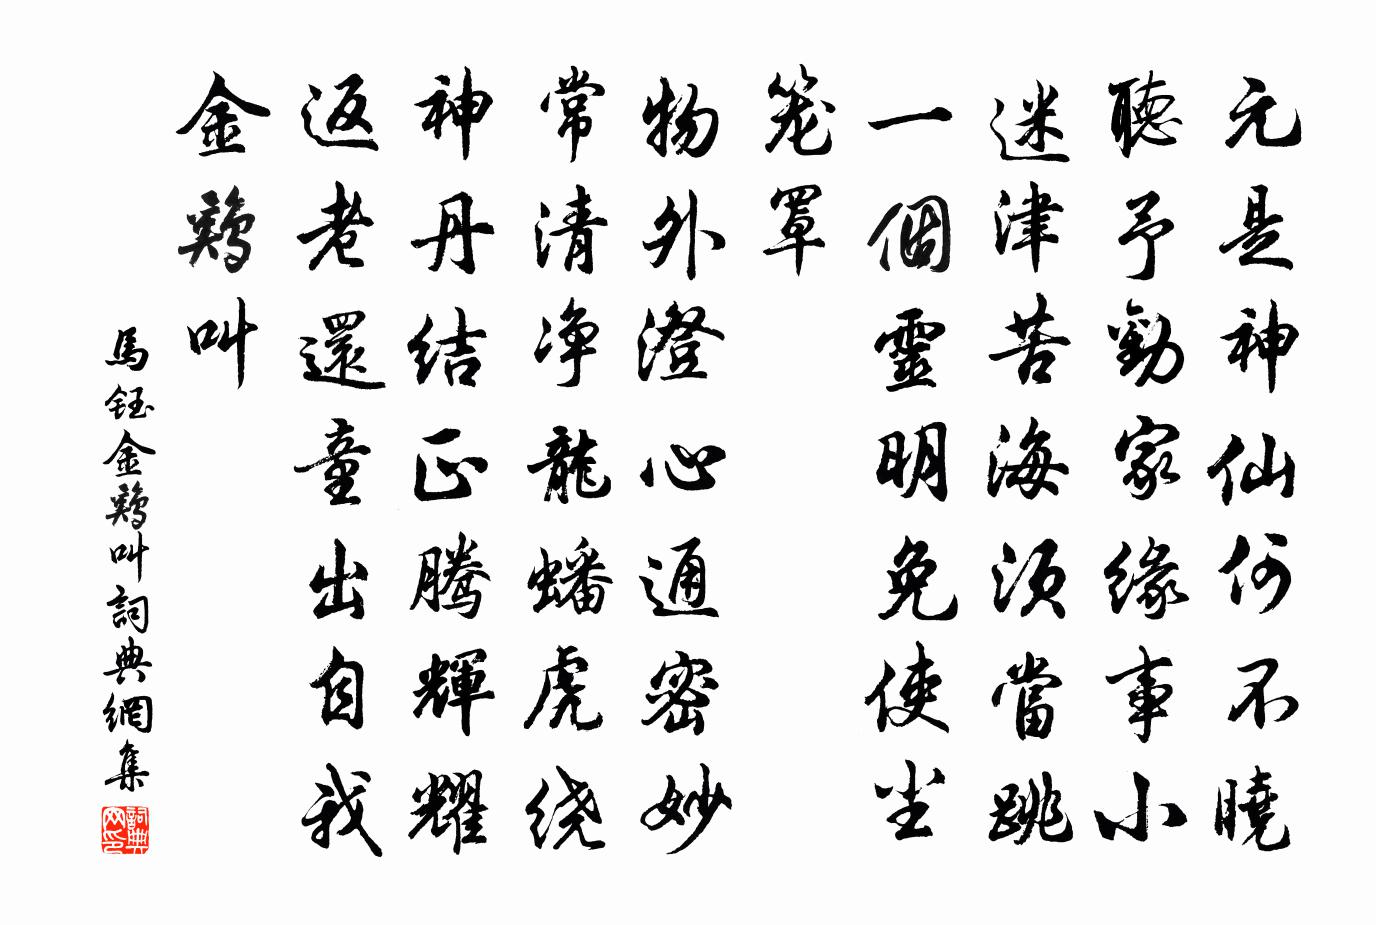 元是神仙何不曉
聽予勸家緣事小
迷津苦海须當跳
一個靈明免使坐
笼罩
物外澄心通密妙
常清净龍蟠虎绕
神丹结正騰輝耀
返老還童出自我
金鷄叫
馬鈺金鷄叫詞典網集
詞典网印